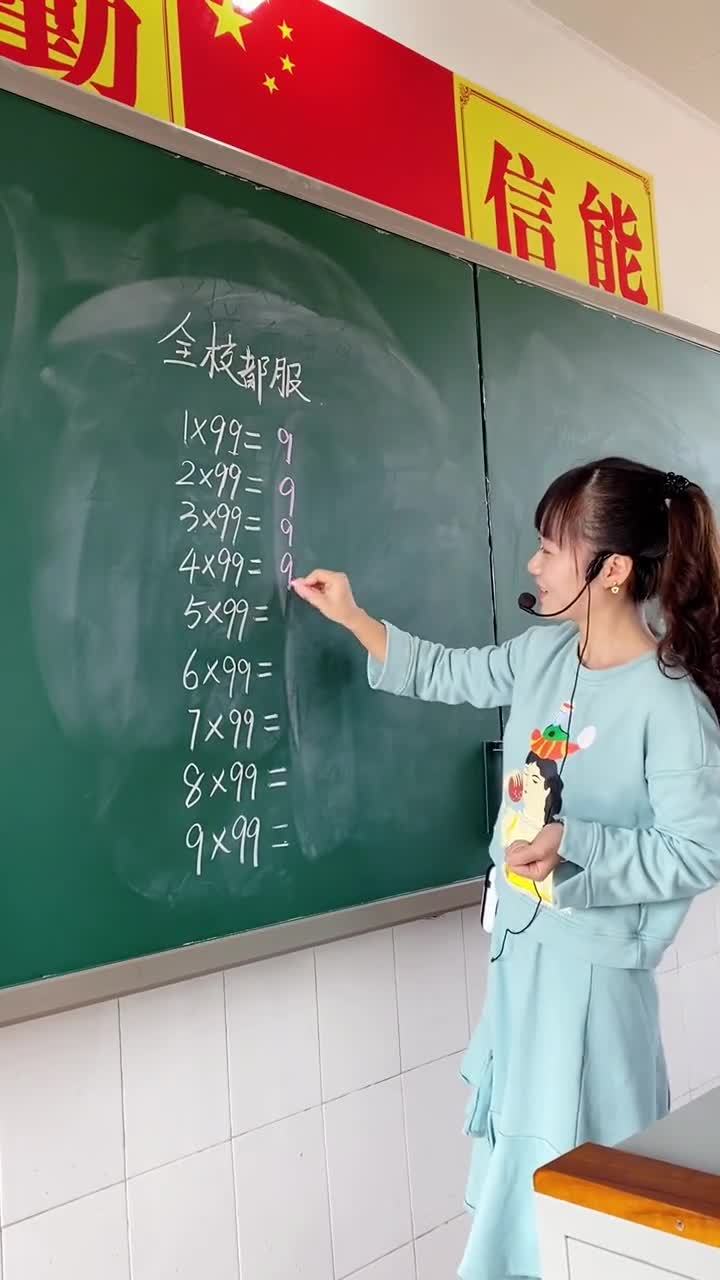 勤
信能
全校都服
1×99=9
2×99=9
3×99=9
4×99=9
5×99=
6×99=
7×99=
8×99=
9×99=